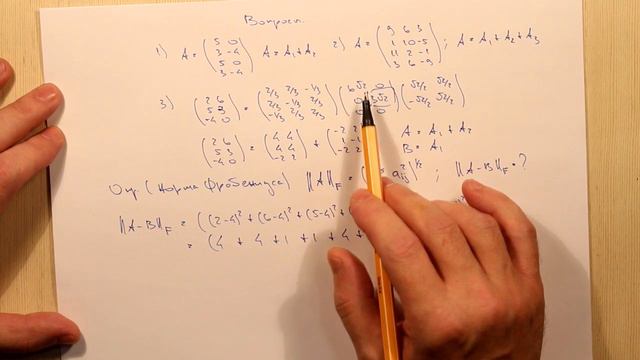 Вопросы.
1) A = (5 0; 3 -4; 5 0; 3 -4) A = A₁ + A₂ 2) A = (9 6 3; 1 10 -5; 11 2 -1; 3 6 -9); A = A₁ + A₂ + A₃
3) (2 6; 5 3; -4 0) = (2/3 2/3 -1/3; 2/3 -1/3 2/3; -1/3 2/3 2/3) (6√2 0; 0 3√2; 0 0) (√2/2 √2/2; -√2/2 √2/2)
(2 6; 5 3; -4 0) = (4 4; 4 4; -2 -2) + (-2 2; 1 -1; -2 2) A = A₁ + A₂
B = A₁
Опр (Норма Фробениуса) ||A||F = ( a²ij)^1/2 ; ||A-B||F = ?
||A-B||F = ((2-4)² + (6-4)² + (5-4)² +
= (4 + 4 + 1 + 1 + 4 +